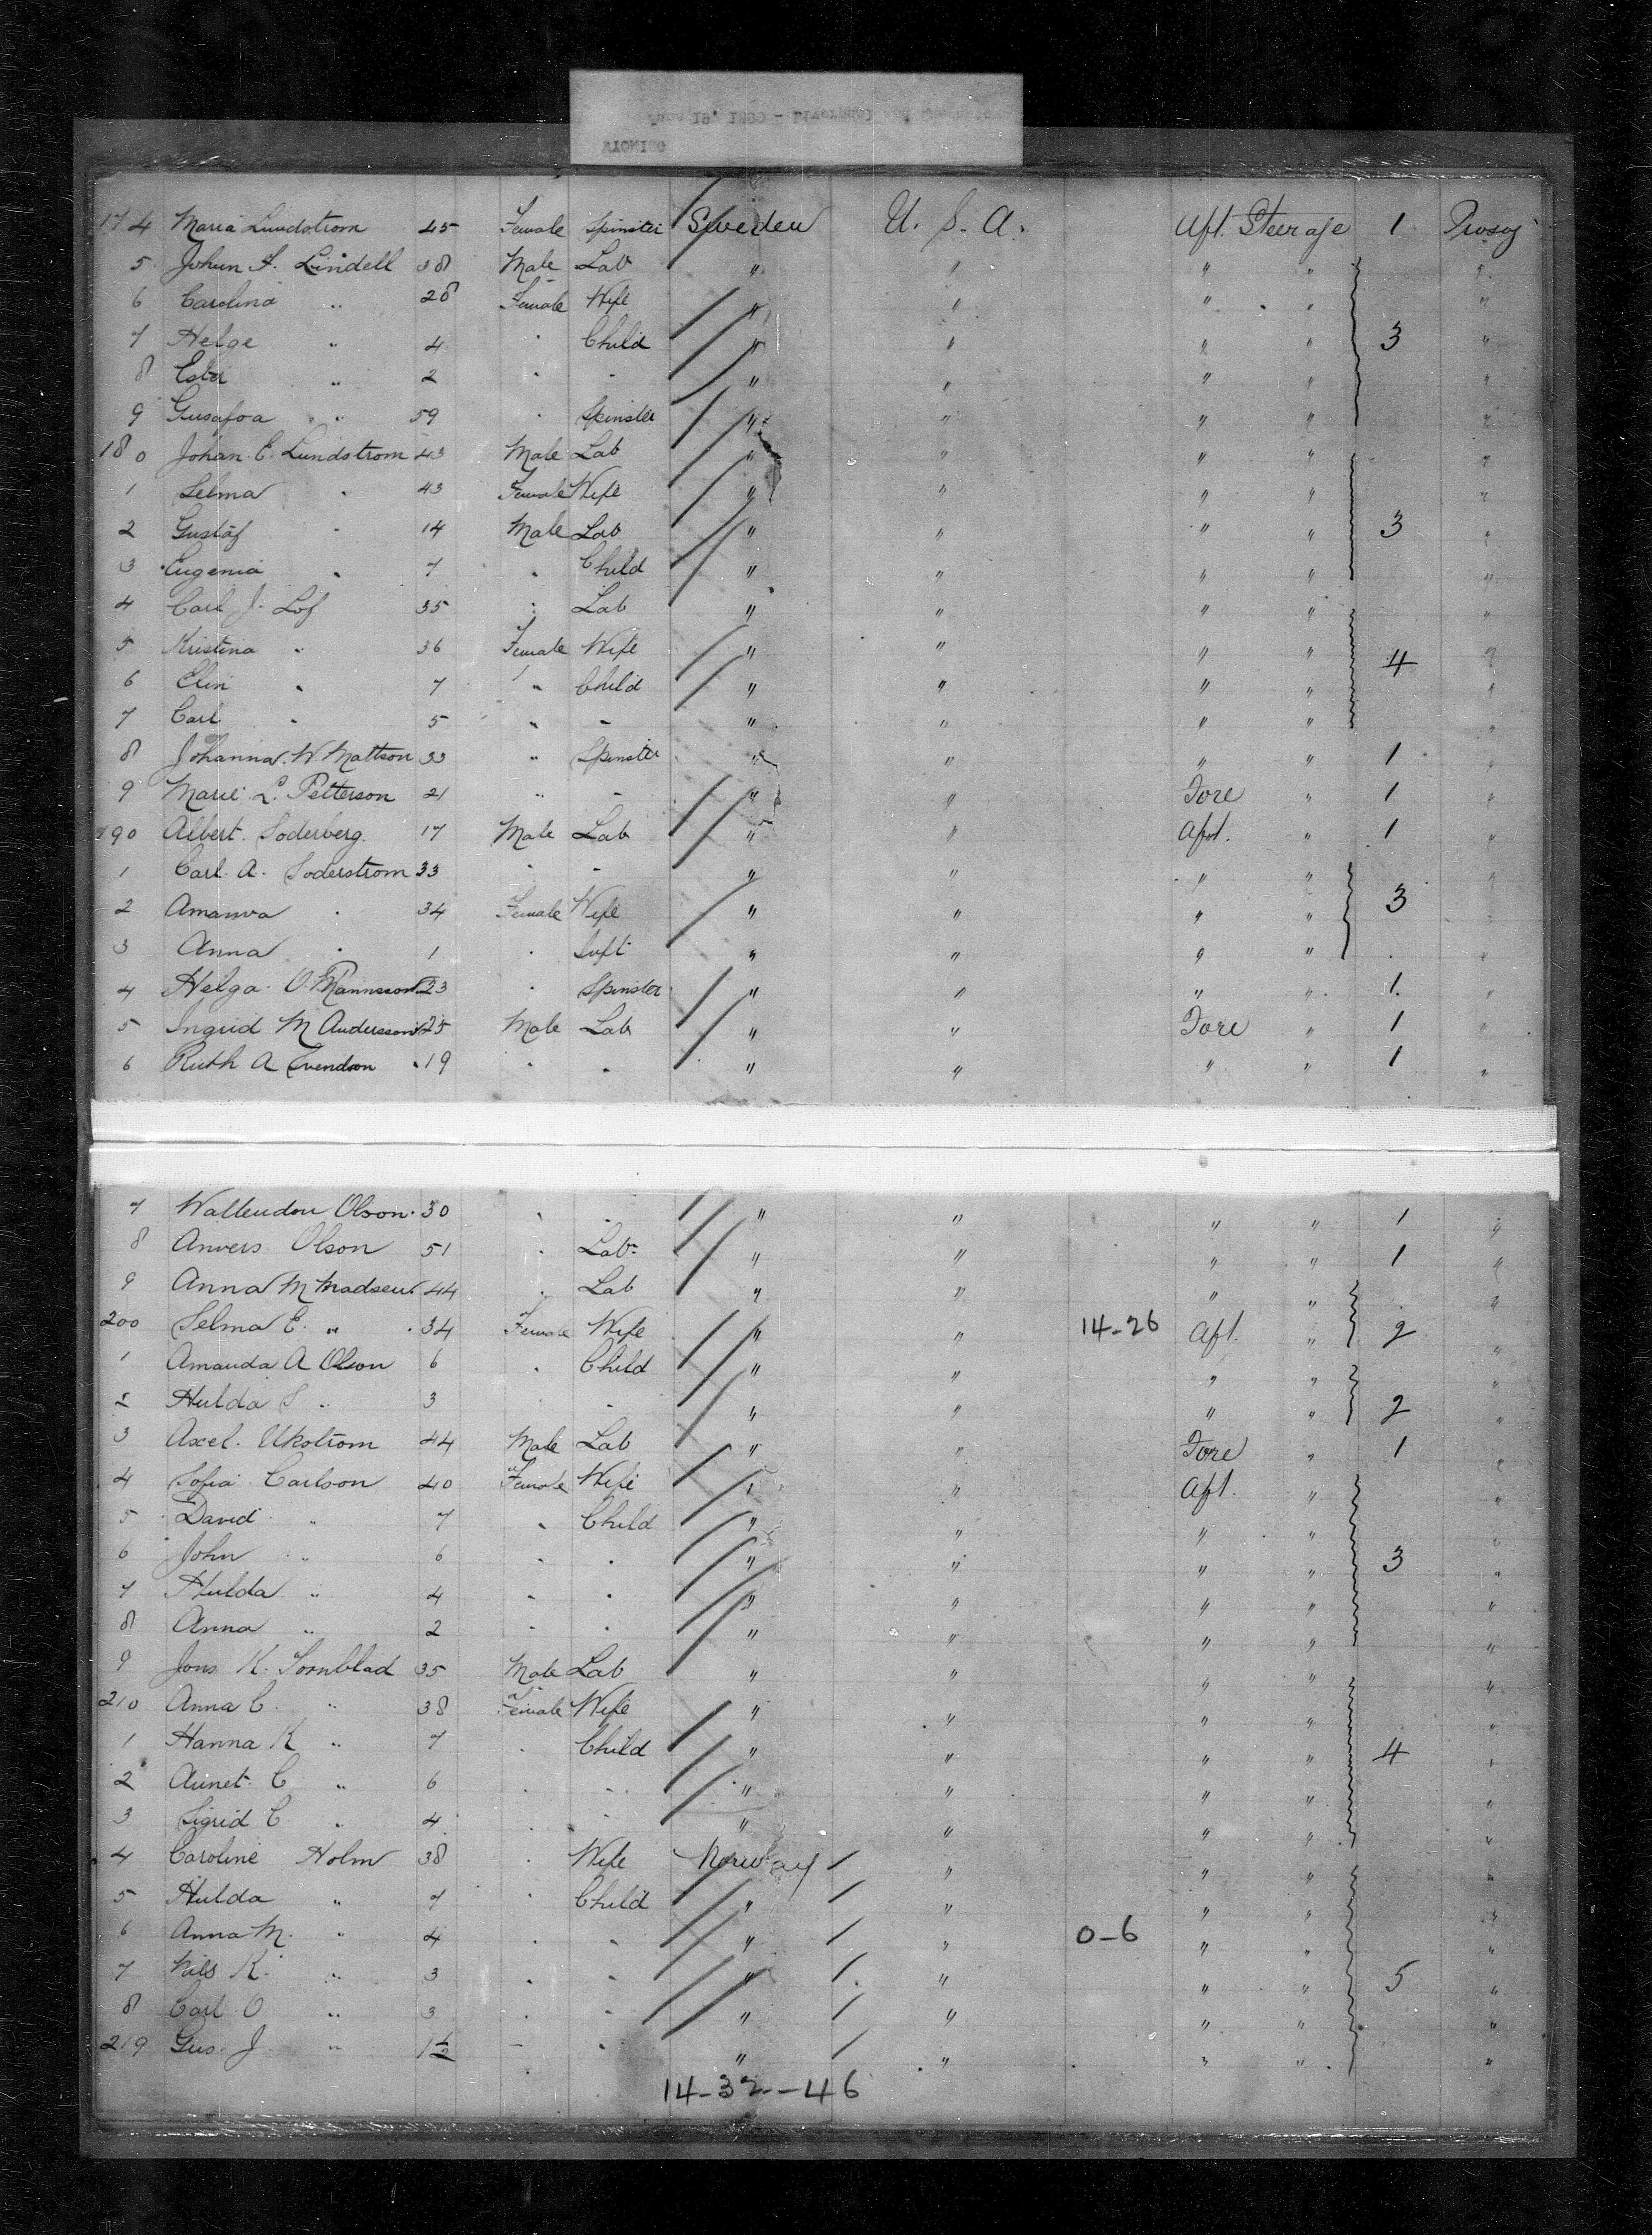 174 Maria Lundstrom 45 Female Spinster Sweden U. S. A. Aft. Steerage 1
5 Johun F. Lindell 38 Male Lab " " " " "
6 Carolina " 28 Female Wife " " " " "
7 Helge " 4 " Child " " " " 3 "
8 Ester " 2 " " " " " " "
9 " 59 " Spinster " " " " "
180 Johan E. Lundstrom 43 Male Lab " " " " "
1 Selma " 43 Female Wife " " " " "
2 Gustaf " 14 Male Lab " " " " 3 "
3 Eugenia " 7 " Child " " " " "
4 Carl J. Lof 35 " Lab " " " " "
5 Kristina " 36 Female Wife " " " " 4 "
6 Elin " 7 " Child " " " " "
7 Carl " 5 " " " " " " "
8 Johanna W. Mattson 33 " Spinster " " " " 1 "
9 Marie L. Petterson 21 " " " " Fore " 1 "
190 Albert Soderberg 17 Male Lab " " Aft. " 1 "
1 Carl A. Soderstrom 33 " " " " " " "
2 Amanva " 34 Female Wife " " " " 3 "
3 Anna " 1 " Inft " " " " "
4 Helga O. Mannsson 23 " Spinster " " " " 1 "
5 Ingrid M Andersson 25 Male Lab " " Fore " 1 "
6 Ruth A Svendson 19 " " " " " " 1 "
7 Wallendou Olson 30 " " " " " " 1 "
8 Anvers Olson 51 " Lab " " " " 1 "
9 Anna M Madsen 44 " Lab " " " " "
200 Selma E. " 34 Female Wife " " 14-26 Aft. " 2 "
1 Amanda A Olson 6 " Child " " " " "
2 Hulda S " 3 " " " " " " 2 "
3 Axel Ukstrom 44 Male Lab " " Fore " 1 "
4 Sofia Carlson 40 Female Wife " " Aft. " "
5 David " 7 " Child " " " " "
6 John " 6 " " " " " " 3 "
7 Hulda " 4 " " " " " " "
8 Anna " 2 " " " " " " "
9 Jons K. Tornblad 35 Male Lab " " " " "
210 Anna C. " 38 Female Wife " " " " "
1 Hanna K " 7 " Child " " " " 4 "
2 Aunet C " 6 " " " " " " "
3 Sigrid C " 4 " " " " " " "
4 Caroline Holm 38 " Wife Norway " " " "
5 Hulda " 7 " Child " " " " "
6 Anna M. " 4 " " " " 0-6 " " "
7 Nils K. " 3 " " " " " " 5 "
8 Carl O " 3 " " " " " " "
219 Gus. J. " 1½ " " " " " " "
14-32--46